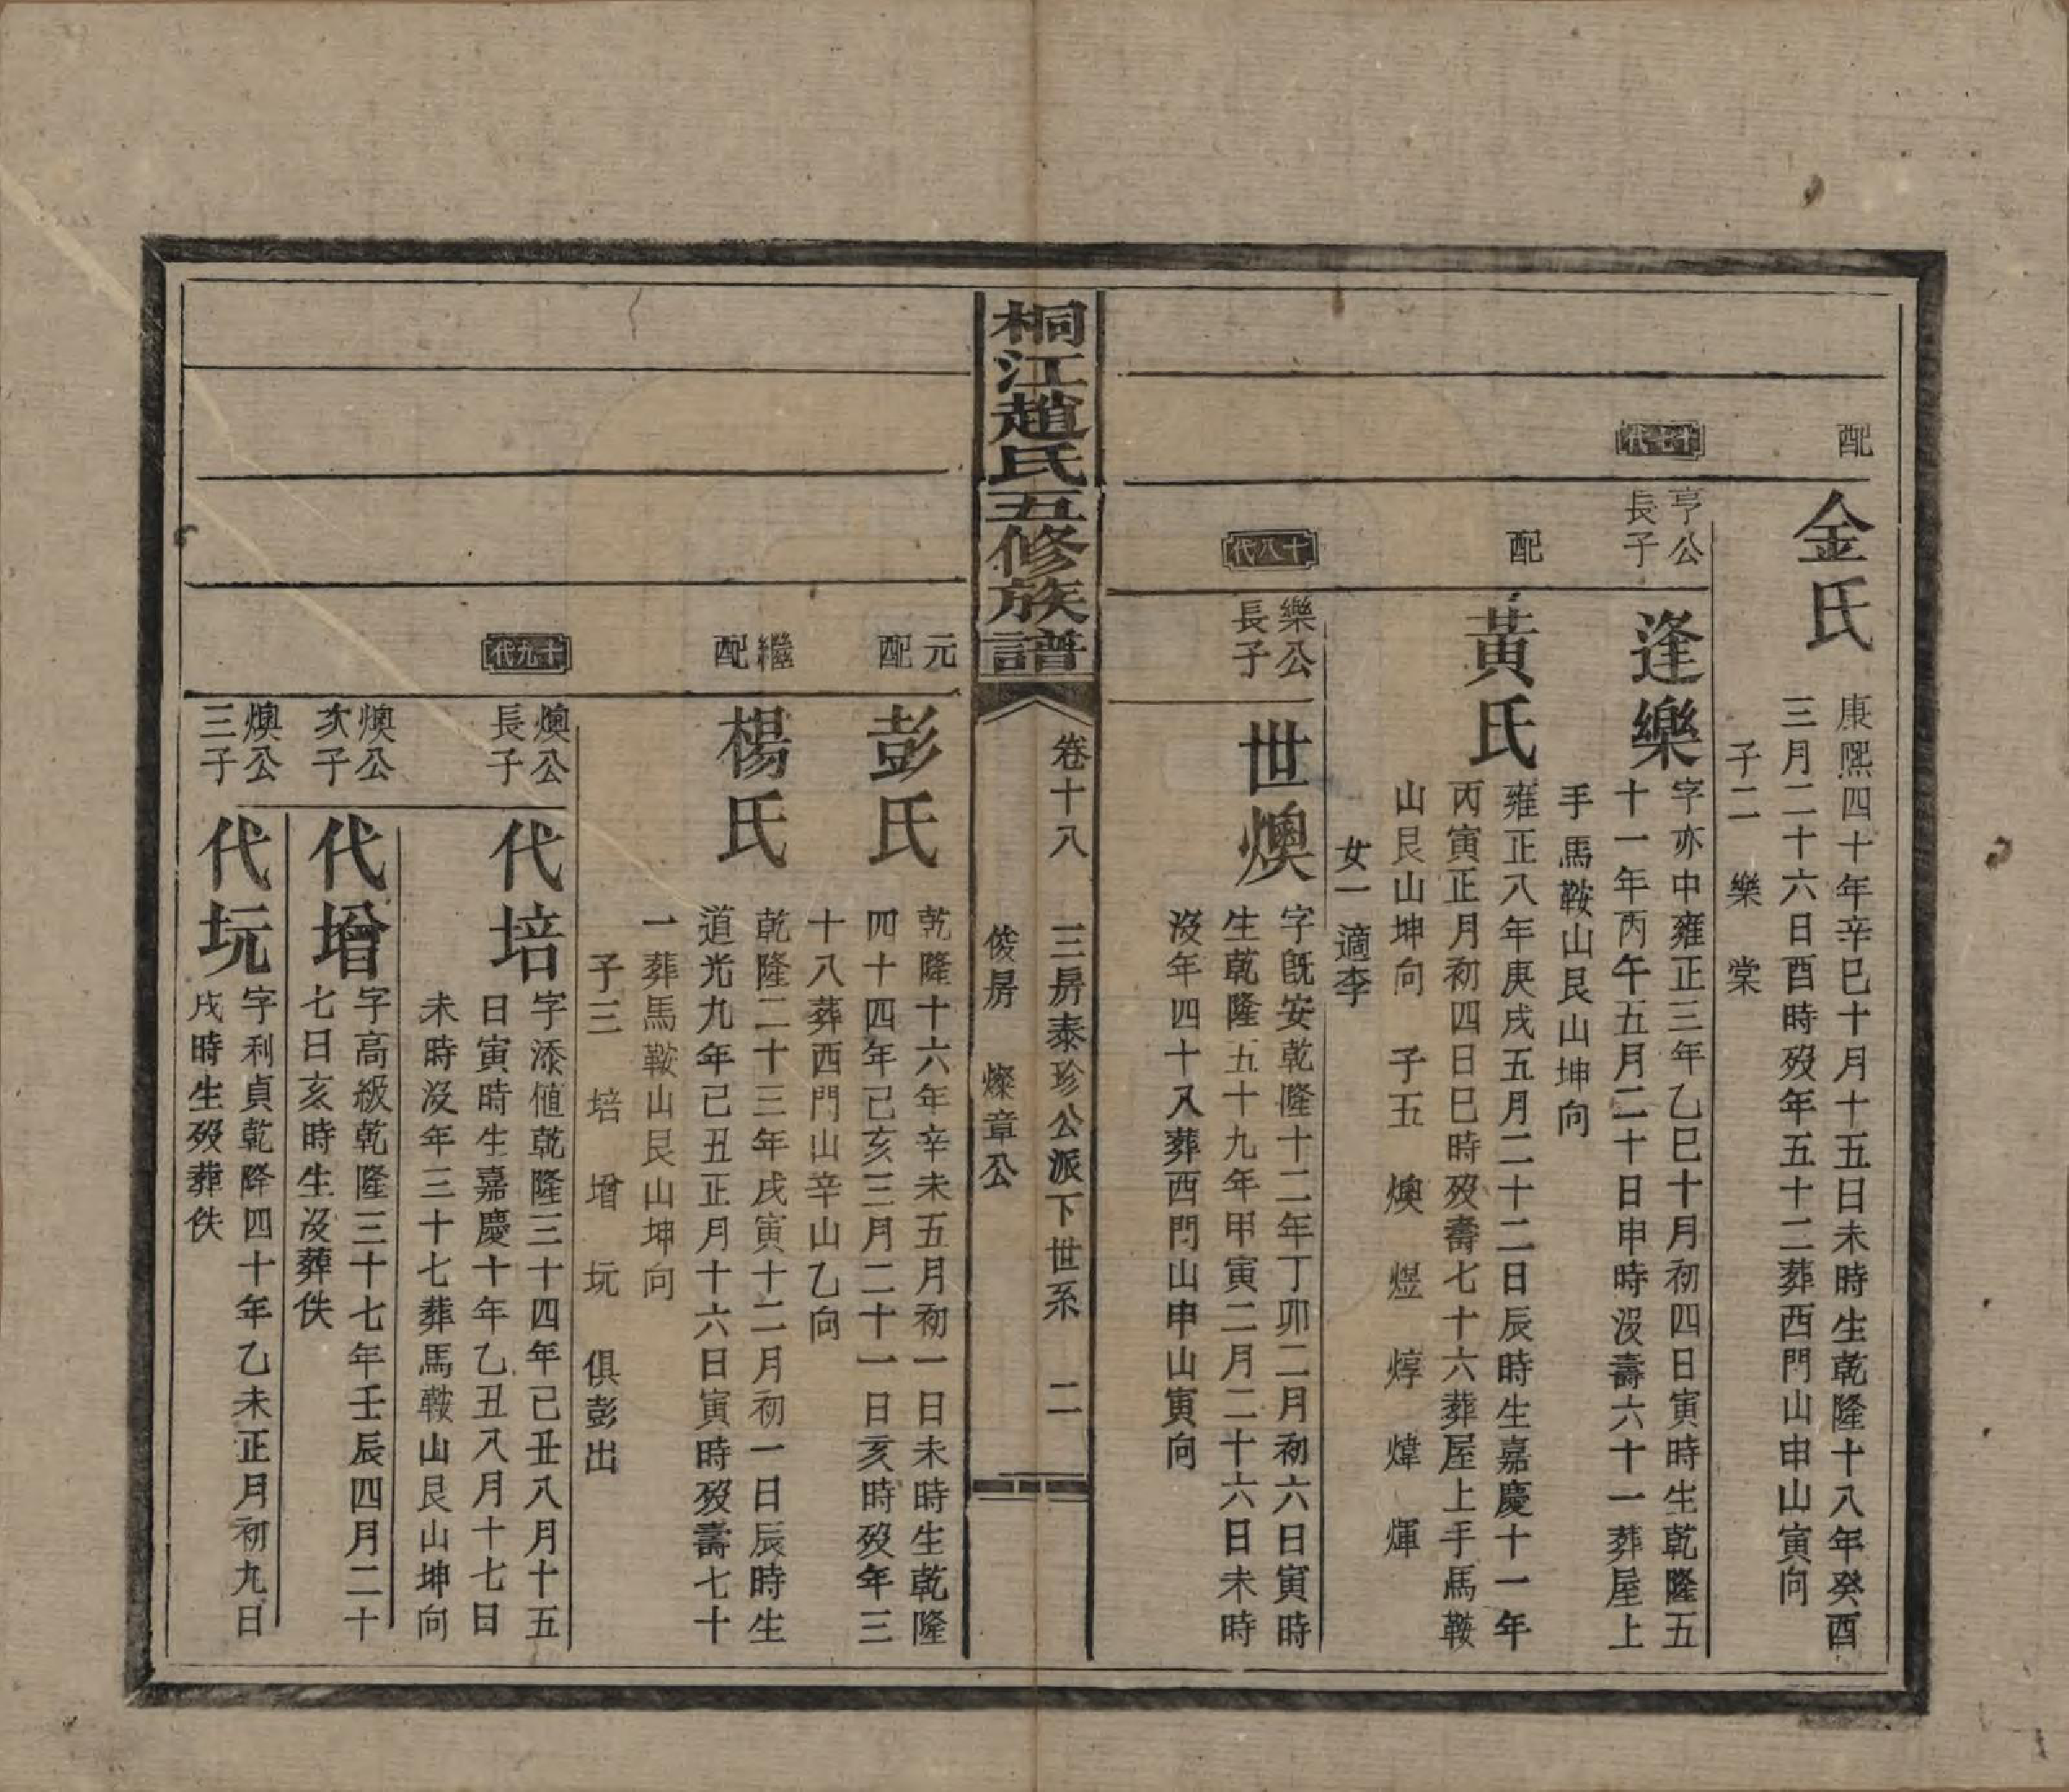 配
金氏
康熙四十年辛巳十月十五日未時生乾隆十八年癸酉
三月二十六日酉時歿年五十二葬西門山申山寅向
子二 樂 棠
十七代
亨公
長子
逢樂
字亦中雍正三年乙巳十月初四日寅時生乾隆五
十一年丙午五月二十日申時沒壽六十一葬屋上
手馬鞍山艮山坤向
配
黃氏
雍正八年庚戌五月二十二日辰時生嘉慶十一年
丙寅正月初四日巳時歿壽七十六葬屋上手馬鞍
山艮山坤向 子五 燠 煜 焞 煒 煇
女一 適李
十八代
樂公
長子
世燠
字旣安乾隆十二年丁卯二月初六日寅時
生乾隆五十九年甲寅二月二十六日未時
沒年四十八葬西門山申山寅向
桐江趙氏五修族譜
卷十八 三房泰珍公派下世系 二
俊房 燦章公
元
配
彭氏
乾隆十六年辛未五月初一日未時生乾隆
四十四年己亥三月二十一日亥時歿年三
十八葬西門山辛山乙向
繼
配
楊氏
乾隆二十三年戊寅十二月初一日辰時生
道光九年己丑正月十六日寅時歿壽七十
一葬馬鞍山艮山坤向
子三 培 增 玩 俱彭出
十九代
燠公
長子
代培
字添値乾隆三十四年己丑八月十五
日寅時生嘉慶十年乙丑八月十七日
未時沒年三十七葬馬鞍山艮山坤向
燠公
次子
代增
字高級乾隆三十七年壬辰四月二十
七日亥時生沒葬佚
燠公
三子
代玩
字利貞乾隆四十年乙未正月初九日
戌時生歿葬佚